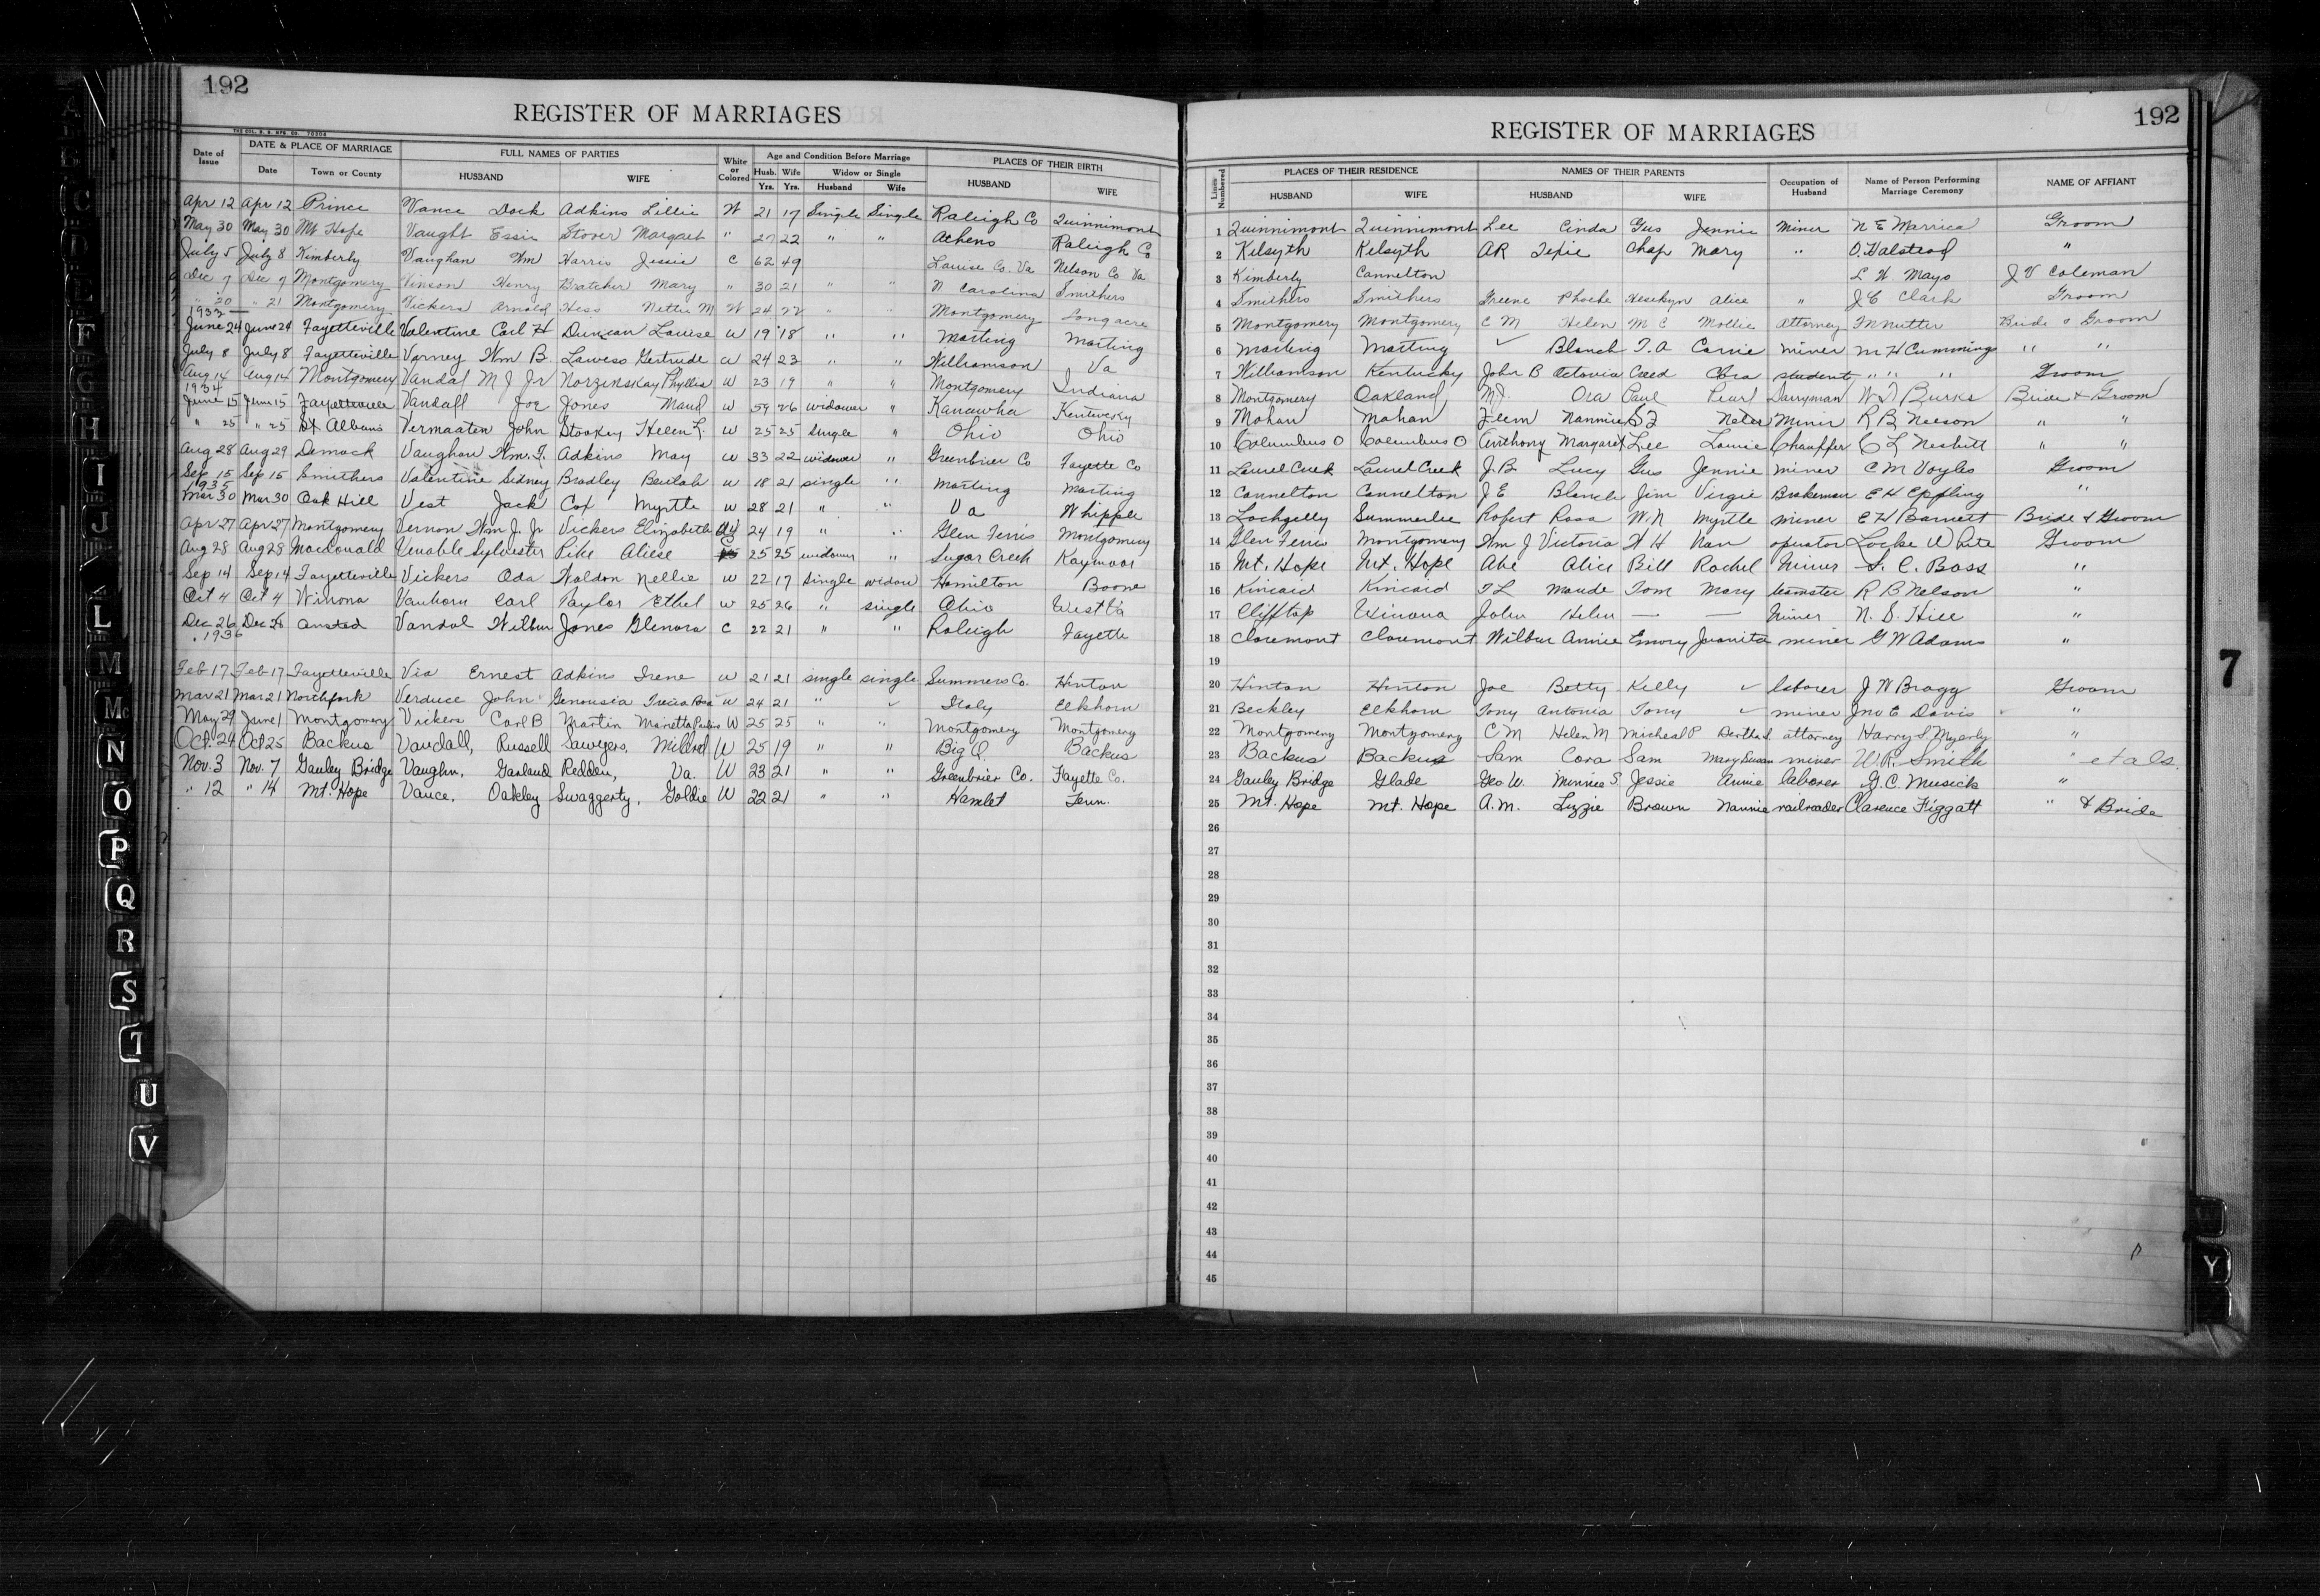 192
REGISTER OF MARRIAGES
Date of Issue
DATE & PLACE OF MARRIAGE
Date
Town or County
FULL NAMES OF PARTIES
HUSBAND
WIFE
White or Colored
Age and Condition Before Marriage
Husb. Yrs.
Wife Yrs.
Widow or Single
Husband
Wife
PLACES OF THEIR BIRTH
HUSBAND
WIFE
Apr 12 Apr 12 Prince Vance Dock Adkins Lillie W 21 17 Single Single Raleigh Co Quinnimont
May 30 May 30 Mt Hope Vaught Essie Stover Margaret " 22 " " Athens Raleigh Co
July 5 July 8 Kimberly Vaughan Wm Harris Jessie C 62 49 Louise Co. Va Nelson Co Va
Dec 7 Dec 7 Montgomery Vinson Henry Bratcher Mary " 30 21 " " N Carolina Smithers
" 20 " 21 Montgomery Vickers Arnold Hess Nettie M W 24 22 " " Montgomery Longacre
1932
June 24 June 24 Fayetteville Valentine Carl H Duncan Louise W 19 18 " " Marting Marting
July 8 July 8 Fayetteville Varney Wm B. Gertrude W 24 23 " " Williamson Va
Aug 14 Aug 14 Montgomery Vandal M J Jr Phyllis W 23 19 " " Montgomery Indiana
1934
June 15 June 15 Fayetteville Vandall Joe Jones Maud W 59 26 widower " Kanawha Kentucky
" 25 " 25 St Albans Vermaaten John Stookey Helen L. W 25 25 single " Ohio Ohio
Aug 28 Aug 29 Vaughan Wm. T. Adkins May W 33 22 widower " Greenbrier Co Fayette Co
Sep 15 Sep 15 Smithers Valentine Sidney Bradley Beulah W 18 21 single " Marting Marting
1935
Mar 30 Mar 30 Oak Hill Vest Jack Cox Myrtle W 28 21 " " Va Whipple
Apr 27 Apr 27 Montgomery Vernon Wm J. Jr Vickers Elizabeth 24 19 " " Glen Ferris Montgomery
Aug 28 Aug 28 Macdonald Venable Sylvester Pike Aliese C 25 25 widower " Sugar Creek Kaymoor
Sep 14 Sep 14 Fayetteville Vickers Oda Waldon Nellie W 22 17 single widow Hamilton Boone
Oct 4 Oct 4 Winona Vanhorn Carl Taylor Ethel W 25 26 " single Ohio West Va
Dec 26 Dec 26 Ansted Vandal Wilbur Jones Glenora C 22 21 " " Raleigh Fayette
1936
Feb 17 Feb 17 Fayetteville Via Ernest Adkins Irene W 21 21 single single Summers Co. Hinton
Mar 21 Mar 21 Northfork Verduce John W 24 21 " Italy Elkhorn
May 29 June 1 Montgomery Vickers Carl B Martin Marietta W 25 25 " " Montgomery Montgomery
Oct. 24 Oct 25 Backus Vandall, Russell Sawyers, Mildred W 25 19 " " Big Q. Backus
Nov. 3 Nov. 7 Gauley Bridge Vaughn, Garland Redden, Va. W 23 21 " " Greenbrier Co. Fayette Co.
" 12 " 14 Mt. Hope Vance, Oakley Swaggerty, Goldie W 22 21 " " Hamlet Tenn.
192
REGISTER OF MARRIAGES
Lines Numbered
PLACES OF THEIR RESIDENCE
HUSBAND
WIFE
NAMES OF THEIR PARENTS
HUSBAND
WIFE
Occupation of Husband
Name of Person Performing Marriage Ceremony
NAME OF AFFIANT
1 Quinnimont Quinnimont Lee Cinda Gus Jennie Miner N E Marrica Groom
2 Kilsyth Kilsyth AR Texie Chap Mary " O. Halstead "
3 Kimberly Cannelton L W. Mayo J V Coleman
4 Smithers Smithers Greene Phoebe Alice " J C Clark Groom
5 Montgomery Montgomery C M Helen M C Mollie Attorney Nutter Bride & Groom
6 Marting Marting Blanch T. A Carrie miner M H Cummings " "
7 Williamson Kentucky John B Octavia Creed Cora student " " " Groom
8 Montgomery Oakland M. J. Ora Paul Pearl Dairyman W D Burks Bride & Groom
9 Mahan Mahan Flem Nannie S Z Miner R B Neeson " "
10 Columbus O Columbus O Anthony Margaret Lee Louise Chauffer C L Nesbitt " "
11 Laurel Creek Laurel Creek J. B Lucy Gus Jennie miner C M Voyles Groom
12 Cannelton Cannelton J E Blanch Jim Virgie Brakeman E H Eppling "
13 Lochgelly Summerlee Robert Rosa W. N Myrtle miner E H Barnett Bride & Groom
14 Glen Ferris Montgomery Wm J Victoria W H Nan operator Locke White Groom
15 Mt. Hope Mt. Hope Abe Alice Bill Rachel Miner S. C. Bass "
16 Kincaid Kincaid T L Maude Tom Mary teamster R B Nelson "
17 Clifftop Winona John Helen — — Miner N. S. Hill "
18 Claremont Claremont Wilbur Annie Emory Juanita miner G W Adams "
19
20 Hinton Hinton Joe Betty Kelly laborer J W Bragg Groom
21 Beckley Elkhorn Tony Antonia Tony miner Jno E Davis "
22 Montgomery Montgomery C M Helen M Micheal P attorney Harry S. Myerly "
23 Backus Backus Sam Cora Sam Mary Susan miner W. R. Smith " et als.
24 Gauley Bridge Glade Geo W. Minnie S. Jessie Annie laborer G. C. Musick "
25 Mt. Hope Mt. Hope A. M. Lizzie Brown Nannie railroader Clarence Figgatt " & Bride
26
27
28
29
30
31
32
33
34
35
36
37
38
39
40
41
42
43
44
45
C
F
G
H
I
J
L
M
Mc
N
O
P
Q
R
S
T
U
V
W
Y
7